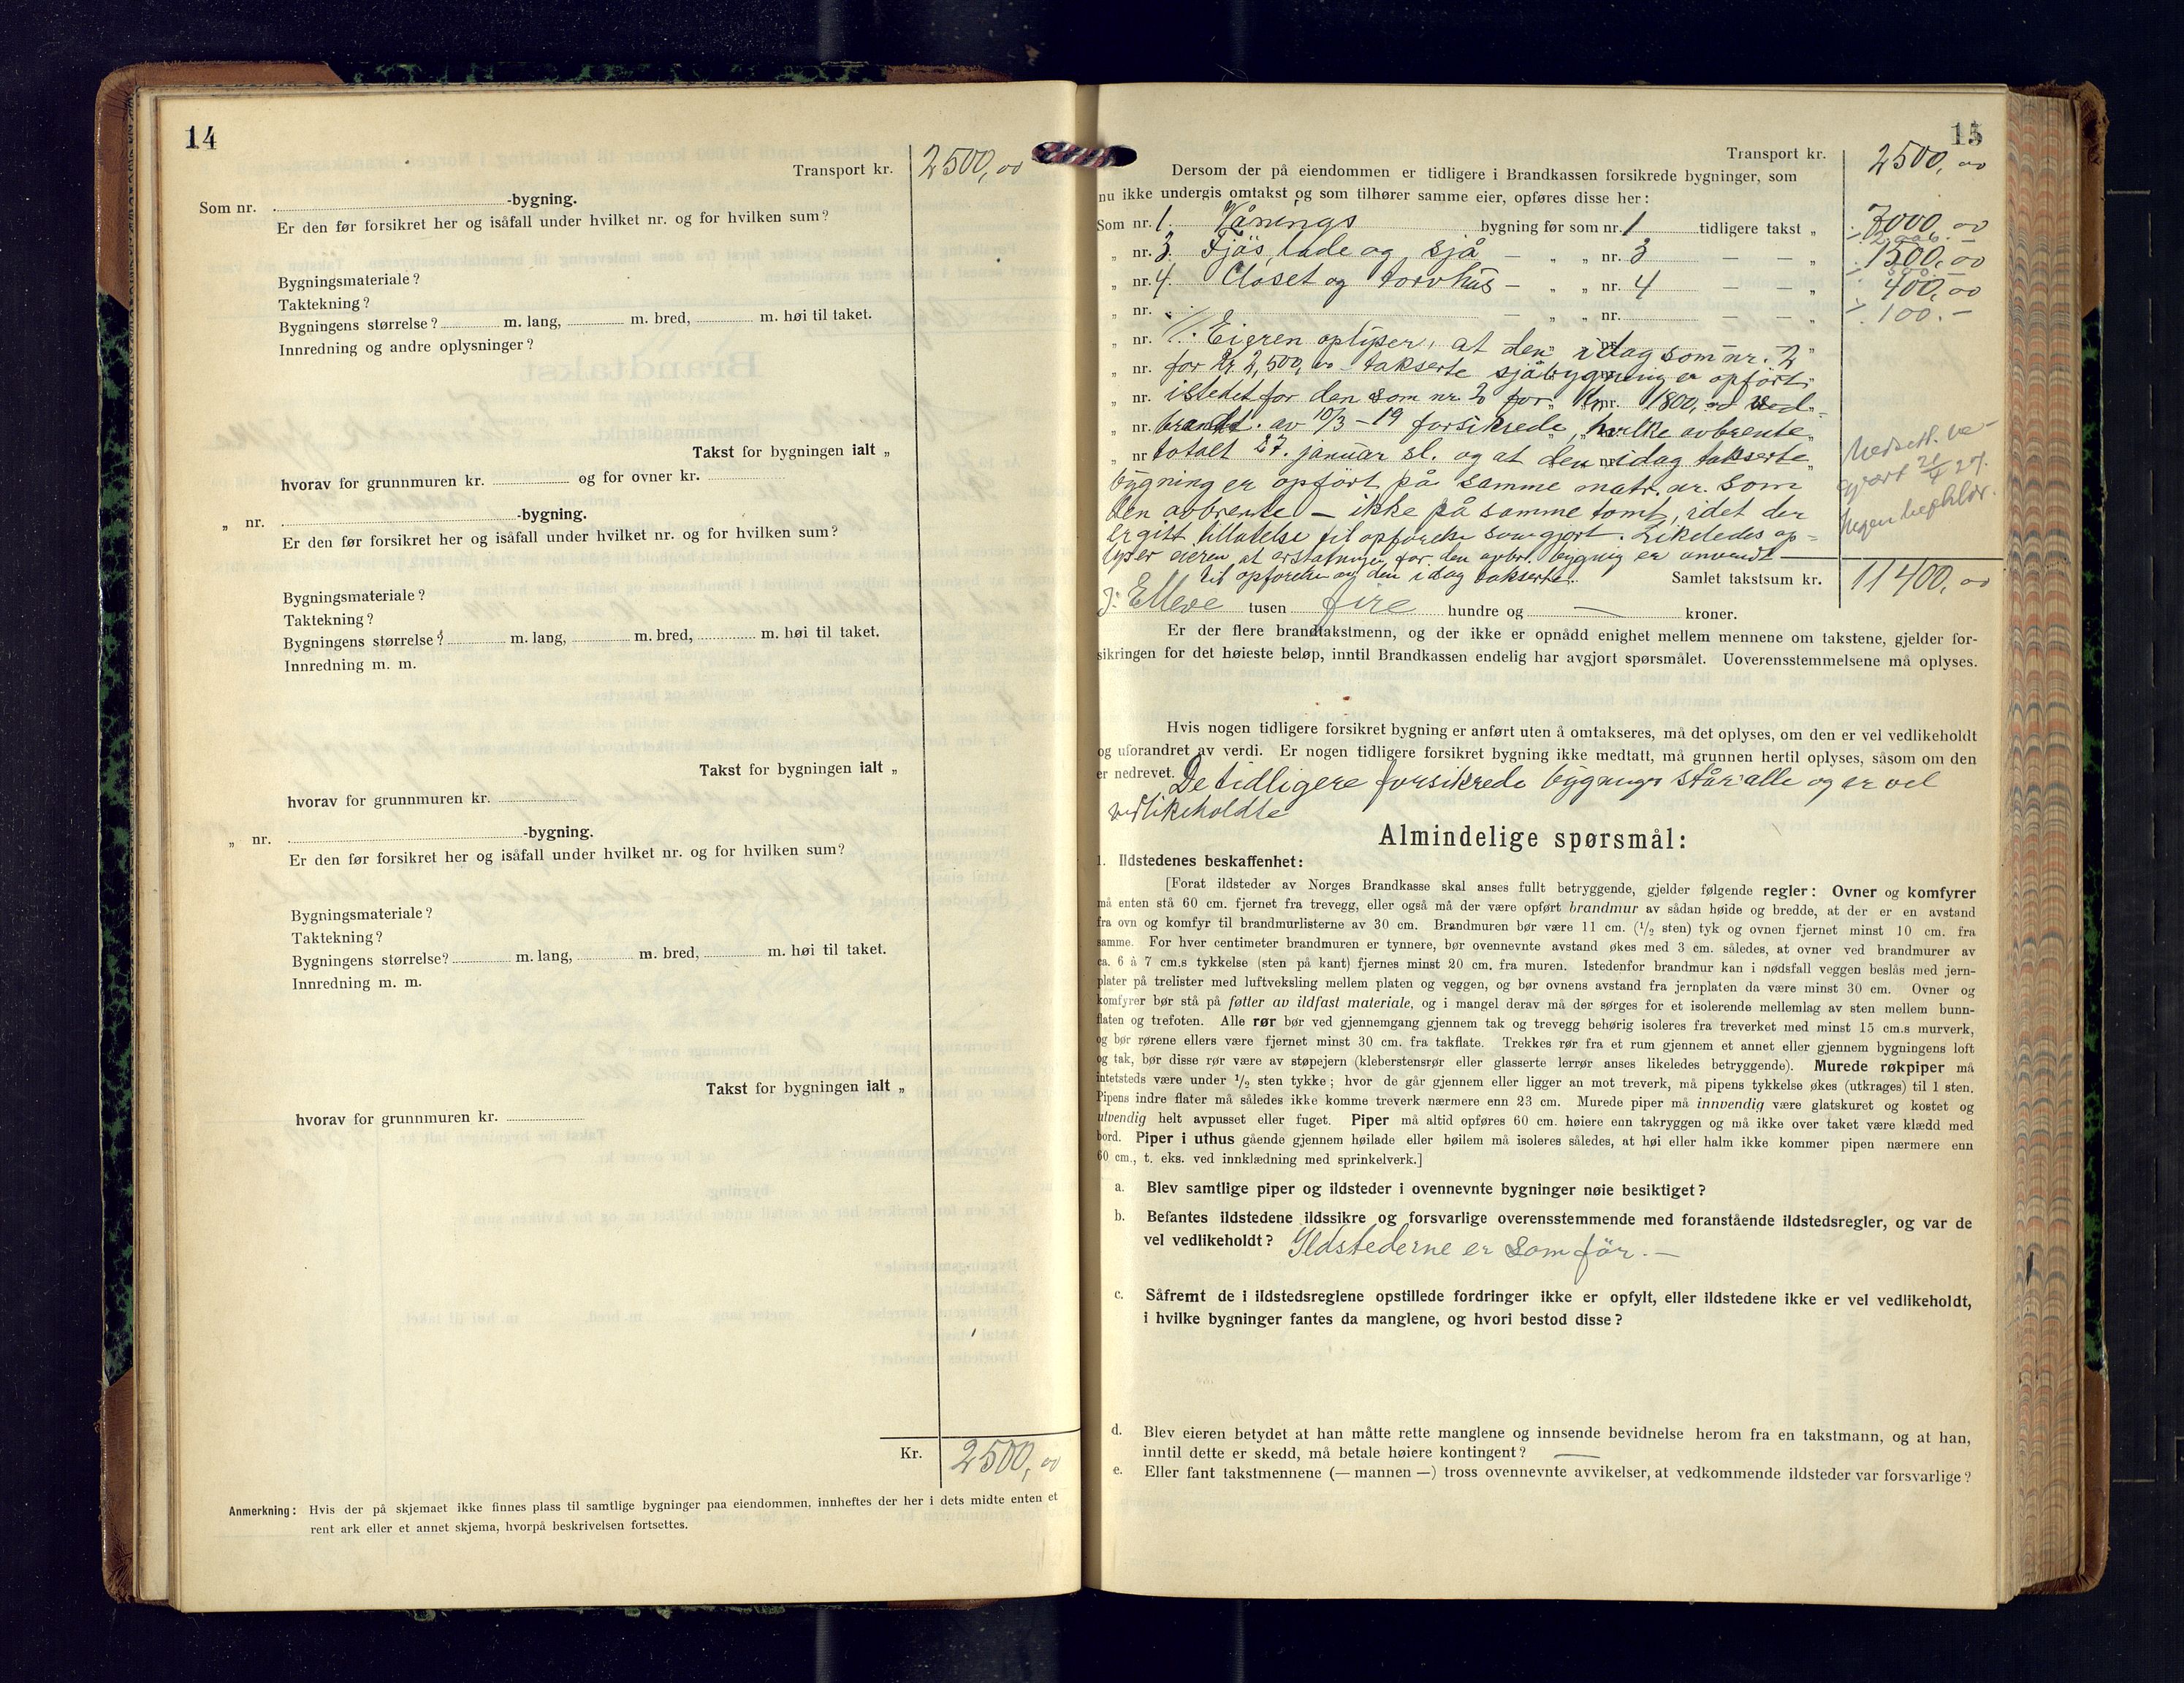 14
Transport kr. 2500,00
Som nr. -bygning.
Er den før forsikret her og isåfall under hvilket nr. og for hvilken sum?
Bygningsmateriale?
Taktekning?
Bygningens størrelse? m. lang, m. bred, m. høi til taket.
Innredning og andre oplysninger?
Takst for bygningen ialt „
hvorav for grunnmuren kr. og for ovner kr.
„ nr. -bygning.
Er den før forsikret her og isåfall under hvilket nr. og for hvilken sum?
Bygningsmateriale?
Taktekning?
Bygningens størrelse? m. lang, m. bred, m. høi til taket.
Innredning m. m.
Takst for bygningen ialt „
hvorav for grunnmuren kr.
„ nr. -bygning.
Er den før forsikret her og isåfall under hvilket nr. og for hvilken sum?
Bygningsmateriale?
Taktekning?
Bygningens størrelse? m. lang, m. bred, m. høi til taket.
Innredning m. m.
Takst for bygningen ialt „
hvorav for grunnmuren kr.
Kr. 2500,00
Anmerkning: Hvis der på skjemaet ikke finnes plass til samtlige bygninger paa eiendommen, innheftes der her i dets midte enten et
rent ark eller et annet skjema, hvorpå beskrivelsen fortsettes.
15
Transport kr. 2500,00
Dersom der på eiendommen er tidligere i Brandkassen forsikrede bygninger, som
nu ikke undergis omtakst og som tilhører samme eier, opføres disse her:
Som nr. 1. Vånings bygning før som nr. 1 tidligere takst „ 7000,00
„ nr. 3. Fjøs, lade og sjå — „ „ nr. 3 — — „ 1500,00
„ nr. 4. Closet og torvhus — „ „ nr. 4 — — „ 400,00
„ nr. — „ „ nr. — — „ 100.-
„ nr. ./. Eieren oplyser, at den idag som nr. 2
„ nr. for kr. 2,500,00 takserte sjåbygning er opført
„ nr. istedetfor den som nr 2 for Kr. 1800,00 ved
„ nr. brandt. av 10/3-19 forsikrede, hvilke avbrente
„ nr totalt 27. januar sl. og at den idag takserte
bygning er opført på samme matr. nr. som
den avbrente — ikke på samme tomt, idet der
er gitt tillatelse til opførelse som gjort. Likeledes op-
lyser eieren at erstatningen for den avbrt. bygnig er anvendt
til opførelse av den idag takserte.
Nedsett. ve-
Samlet takstsum kr. 11400,00
Elleve tusen fire hundre og — kroner.
Er der flere brandtakstmenn, og der ikke er opnådd enighet mellem mennene om takstene, gjelder for-
sikringen for det høieste beløp, inntil Brandkassen endelig har avgjort spørsmålet. Uoverensstemmelsene må oplyses.
Hvis nogen tidligere forsikret bygning er anført uten å omtakseres, må det oplyses, om den er vel vedlikeholdt
og uforandret av verdi. Er nogen tidligere forsikret bygning ikke medtatt, må grunnen hertil oplyses, såsom om den
er nedrevet. De tidligere forsikrede bygninger står alle og er vel
vedlikeholdte
Almindelige spørsmål:
1. Ildstedenes beskaffenhet:
[Forat ildsteder av Norges Brandkasse skal anses fullt betryggende, gjelder følgende regler: Ovner og komfyrer
må enten stå 60 cm. fjernet fra trevegg, eller også må der være opført brandmur av sådan høide og bredde, at der er en avstand
fra ovn og komfyr til brandmurlisterne av 30 cm. Brandmuren bør være 11 cm. (1/2 sten) tyk og ovnen fjernet minst 10 cm. fra
samme. For hver centimeter brandmuren er tynnere, bør ovennevnte avstand økes med 3 cm. således, at ovner ved brandmurer av
ca. 6 à 7 cm.s tykkelse (sten på kant) fjernes minst 20 cm. fra muren. Istedenfor brandmur kan i nødsfall veggen beslås med jern-
plater på trelister med luftveksling mellem platen og veggen, og bør ovnens avstand fra jernplaten da være minst 30 cm. Ovner og
komfyrer bør stå på føtter av ildfast materiale, og i mangel derav må der sørges for et isolerende mellemlag av sten mellem bunn-
flaten og trefoten. Alle rør bør ved gjennemgang gjennem tak og trevegg behørig isoleres fra treverket med minst 15 cm.s murverk,
og bør rørene ellers være fjernet minst 30 cm. fra takflate. Trekkes rør fra et rum gjennem et annet eller gjennem bygningens loft
og tak, bør disse rør være av støpejern (kleberstensrør eller glasserte lerrør anses likeledes betryggende). Murede røkpiper må
intetsteds være under 1/2 sten tykke; hvor de går gjennem eller ligger an mot treverk, må pipens tykkelse økes (utkrages) til 1 sten.
Pipens indre flater må således ikke komme treverk nærmere enn 23 cm. Murede piper må innvendig være glatskuret og kostet og
utvendig helt avpusset eller fuget. Piper må altid opføres 60 cm. høiere enn takryggen og må ikke over taket være klædd med
bord. Piper i uthus gående gjennem høilade eller høilem må isoleres således, at høi eller halm ikke kommer pipen nærmere enn
60 cm., t. eks. ved innklædning med sprinkelverk.]
a. Blev samtlige piper og ildsteder i ovennevnte bygninger nøie besiktiget?
b. Befantes ildstedene ildssikre og forsvarlige overensstemmende med foranstående ildstedsregler, og var de
vel vedlikeholdt? Ildstederne er som før. —
c. Såfremt de i ildstedsreglene opstillede fordringer ikke er opfylt, eller ildstedene ikke er vel vedlikeholdt,
i hvilke bygninger fantes da manglene, og hvori bestod disse?
d. Blev eieren betydet at han måtte rette manglene og innsende bevidnelse herom fra en takstmann, og at han,
inntil dette er skedd, må betale høiere kontingent? —
e. Eller fant takstmennene (— mannen —) tross ovennevnte avvikelser, at vedkommende ildsteder var forsvarlige?